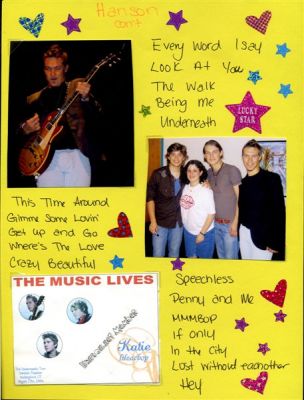 Hanson
con't
Every Word I say
Look At You
The Walk
Being Me
Underneath
LUCKY
STAR
This Time Around
Gimme Some Lovin'
Get up and Go
Where's The Love
Crazy Beautiful
THE MUSIC LIVES
Katie
Speechless
Penny and Me
MMMBOP
If only
In the City
Lost without eachother
Hey